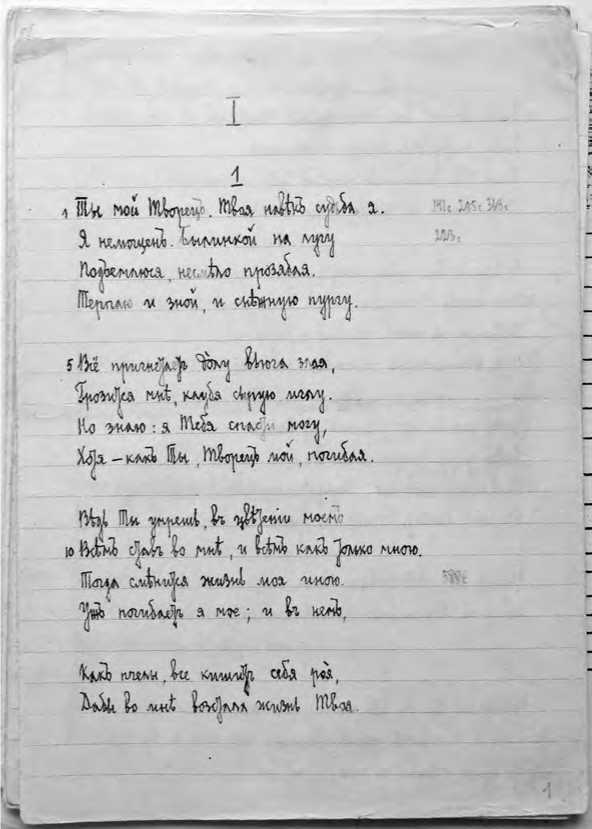 I
1
1 Ты мой Творецъ. Твоя навѣкъ судьба я.
Я немощенъ. Былинкой на лугу
Подъемлюся, несмѣло прозябая.
Терплю и зной, и снѣжную пургу.
5 Всё пригнетаетъ долу вьюга злая,
Грозится мнѣ, клубя сырую мглу.
Но знаю: я Тебя спасти могу,
Хотя – какъ Ты, Творецъ мой, погибая.
Вѣдь Ты умрешь, въ цвѣтеніи моемъ
10 Всѣмъ ставъ во мнѣ, и всѣмъ какъ только мною.
Тогда смѣнится жизнь моя иною.
Ужъ погибаетъ я мое; и въ немъ,
Какъ пчелы, все кишитъ себя роя,
Дабы во мнѣ возстала жизнь Твоя.
1